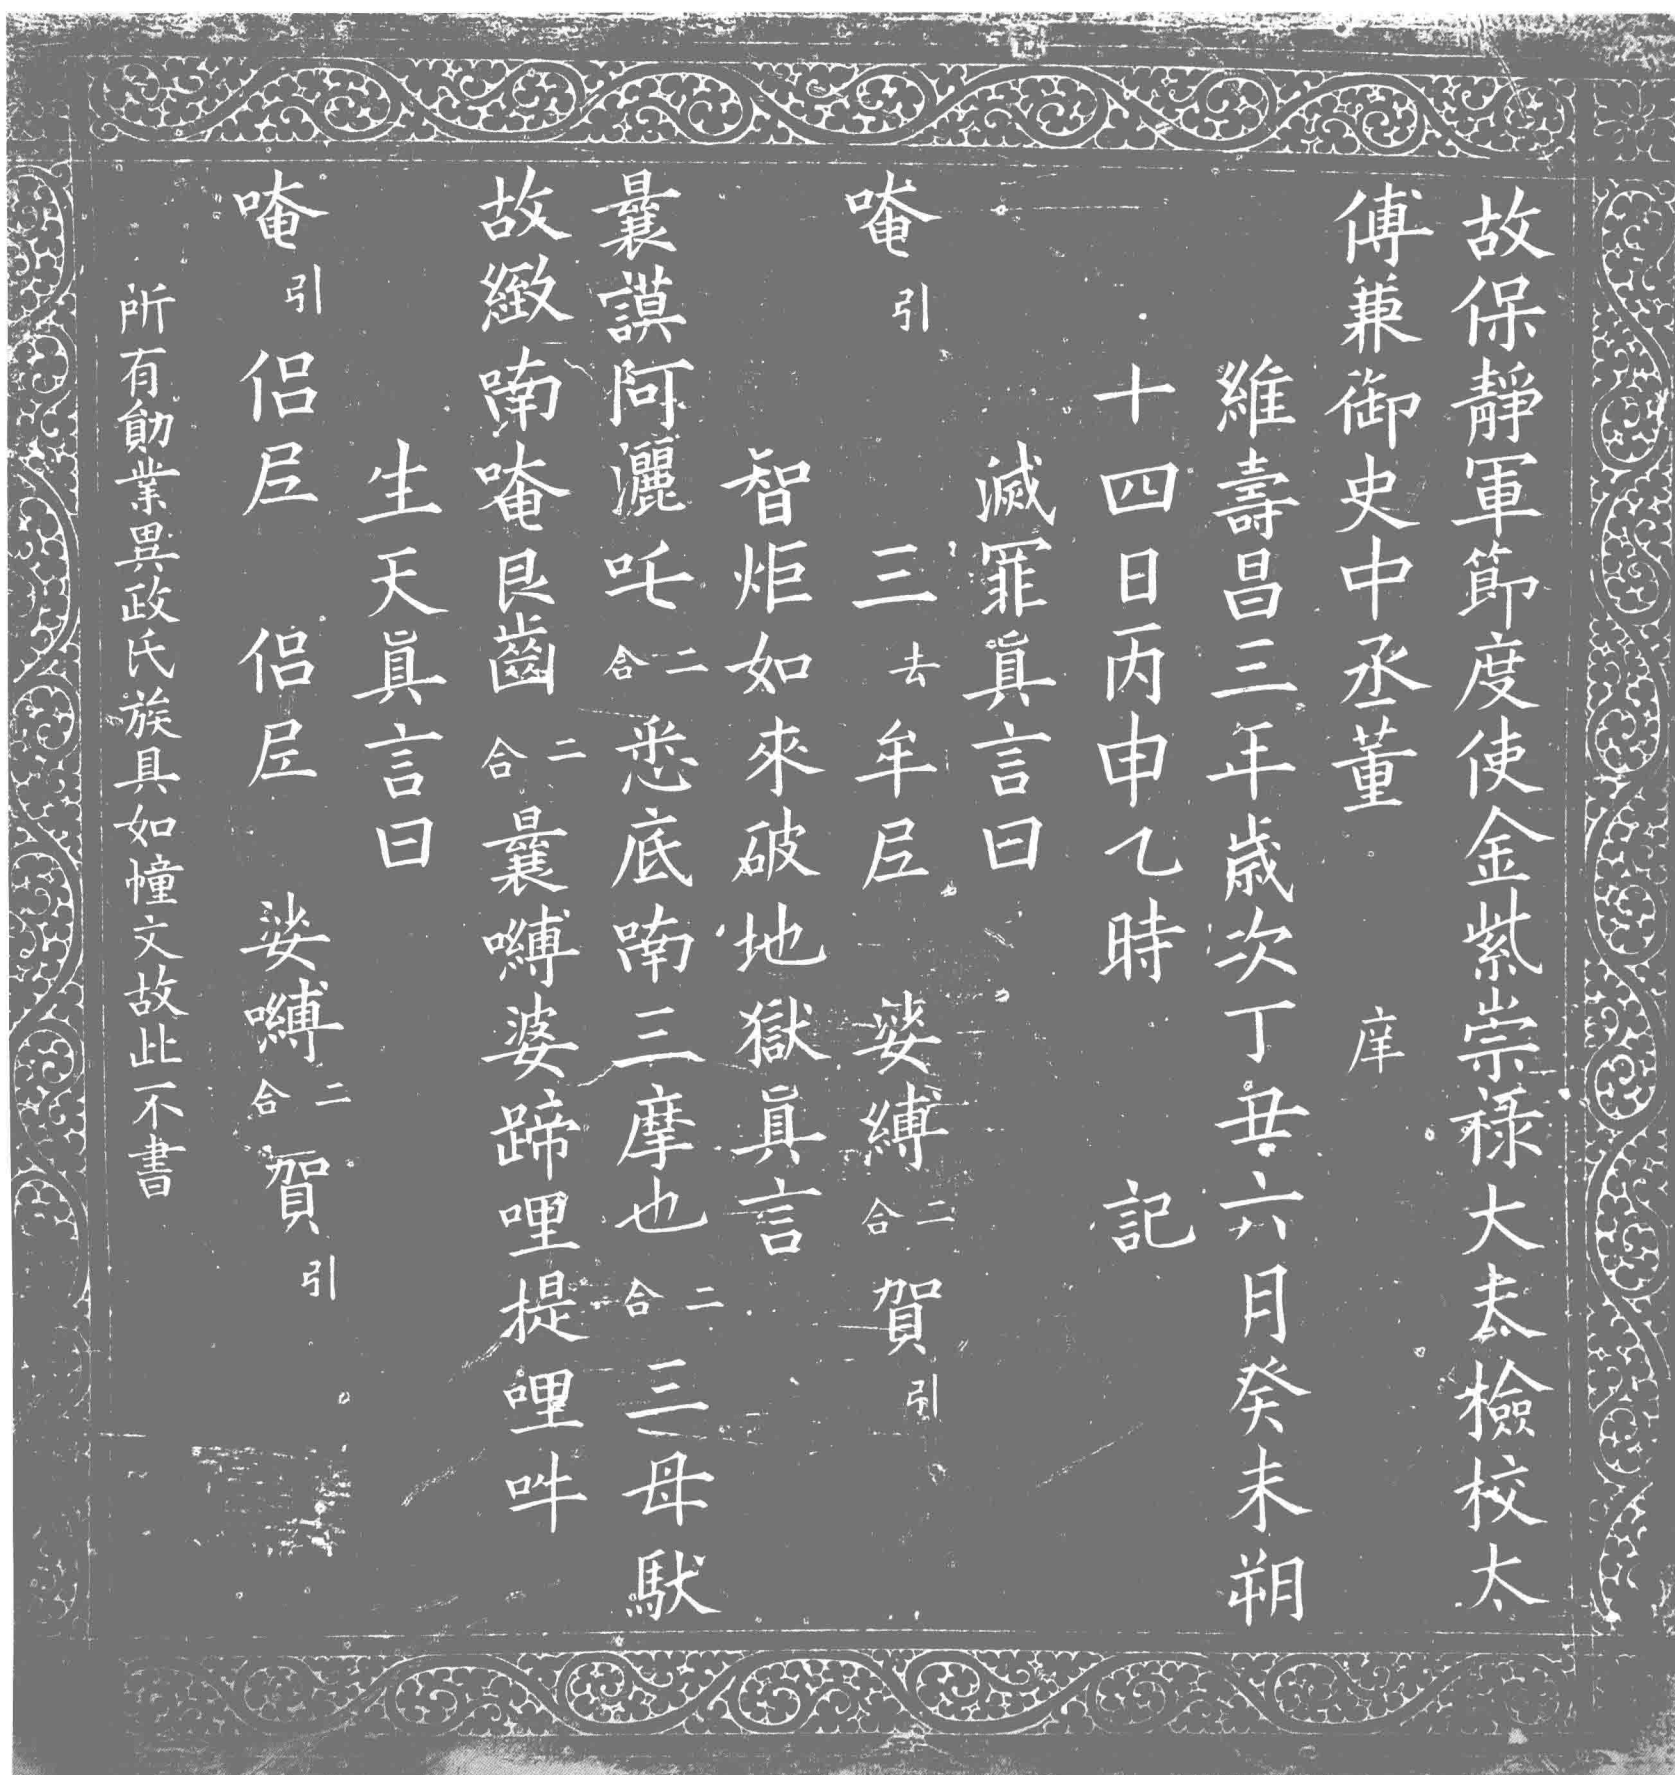 故保靜軍節度使金紫崇祿大夫檢校太
傅兼御史中丞董庠
維壽昌三年歲次丁丑六月癸未朔
十四日丙申乙時記
滅罪眞言曰
唵引三去牟𡰱娑縛二合賀引
智炬如來破地獄眞言
曩謨阿灑吒二合悉底喃三摩也二合三母馱
故緻喃唵艮齒二合曩嚩婆蹄哩提哩吽
生天眞言曰
唵引侶𡰱侶𡰱娑嚩二合賀引
所有勛業異政氏族具如幢文故此不書